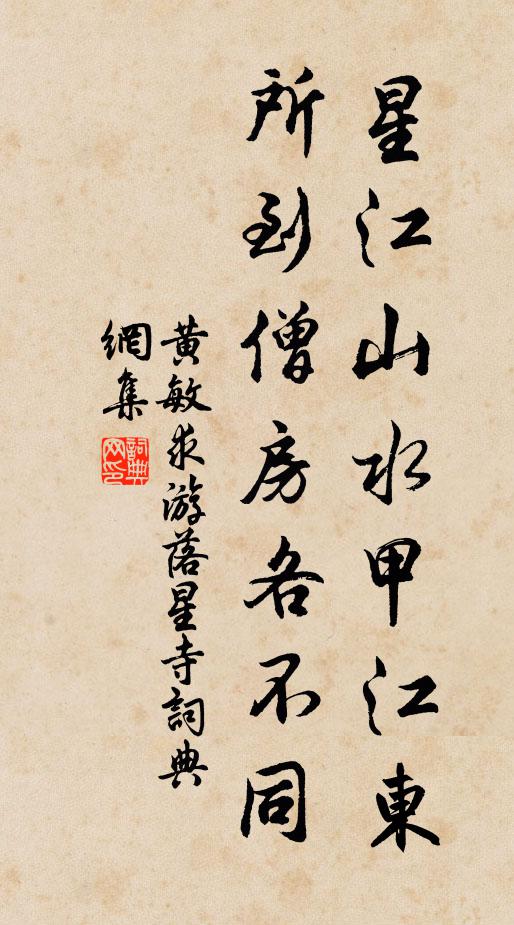 星江山水甲江東
所到僧房各不同
黄敏求游落星寺詞典
網集
詞典
网印